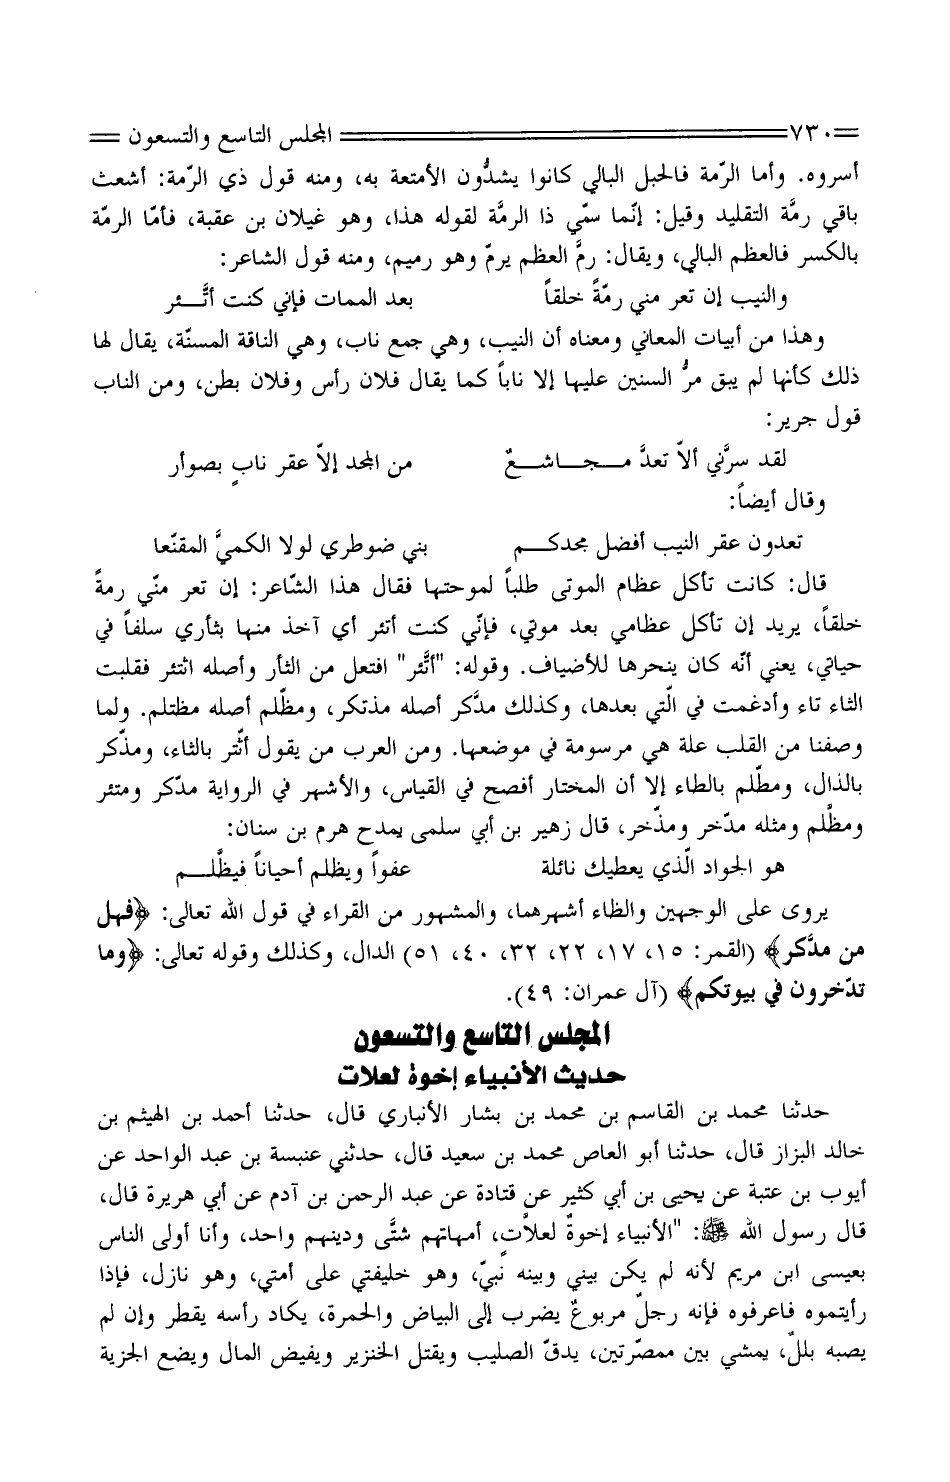 ٧٣٠ المجلس التاسع والتسعون
أسروه. وأما الرّمة فالحبل البالي كانوا يشدُّون الأمتعة به، ومنه قول ذي الرّمة: أشعث
باقي رمَّة التقليد وقيل: إنّما سمّي ذا الرمَّة لقوله هذا، وهو غيلان بن عقبة، فأمّا الرمّة
بالكسر فالعظم البالي، ويقال: رمَّ العظم يرمّ وهو رميم، ومنه قول الشاعر:
والنيب إن تعر مني رمّةً خلقاً بعد الممات فإني كنت أتَّـــئر
وهذا من أبيات المعاني ومعناه أن النيب، وهي جمع ناب، وهي الناقة المسنّة، يقال لها
ذلك كأنها لم يبق مرُّ السنين عليها إلا ناباً كما يقال فلان رأس وفلان بطن، ومن الناب
قول جرير:
لقد سرَّني ألاّ تعدَّ مـــجـــاشـــعٌ من المجد إلاّ عقر نابٍ بصوأر
وقال أيضاً:
تعدون عقر النيب أفضل مجدكـــم بني ضوطري لولا الكميَّ المقنّعا
قال: كانت تأكل عظام الموتى طلباً لموحتها فقال هذا الشّاعر: إن تعر منّي رمةً
خلقاً، يريد إن تأكل عظامي بعد موتي، فإنّي كنت أتئر أي آخذ منها بثأري سلفاً في
حياتي، يعني أنّه كان ينحرها للأضياف. وقوله: "أتَّئر" افتعل من الثأر وأصله اثتئر فقلبت
الثاء تاء وأدغمت في الّتي بعدها، وكذلك مدَّكر أصله مذتكر، ومظّلم أصله مظتلم. ولما
وصفنا من القلب علة هي مرسومة في موضعها. ومن العرب من يقول أثّتر بالثاء، ومذّكر
بالذال، ومطّلم بالطاء إلا أن المختار أفصح في القياس، والأشهر في الرواية مدّكر ومتئر
ومظَّلم ومثله مدّخر ومذّخر، قال زهير بن أبي سلمى يمدح هرم بن سنان:
هو الجواد الّذي يعطيك نائلة عفواً ويظلم أحياناً فيظَّلـــم
يروى على الوجهين والظاء أشهرهما، والمشهور من القراء في قول الله تعالى: ﴿فهل
من مدَّكر﴾ (القمر: ١٥، ١٧، ٢٢، ٣٢، ٤٠، ٥١) الدال، وكذلك وقوله تعالى: ﴿وما
تدّخرون في بيوتكم﴾ (آل عمران: ٤٩).
المجلس التاسع والتسعون
حديث الأنبياء إخوة لعلات
حدثنا محمد بن القاسم بن محمد بن بشار الأنباري قال، حدثنا أحمد بن الهيثم بن
خالد البزاز قال، حدثنا أبو العاص محمد بن سعيد قال، حدثني عنبسة بن عبد الواحد عن
أيوب بن عتبة عن يحيى بن أبي كثير عن قتادة عن عبد الرحمن بن آدم عن أبي هريرة قال،
قال رسول الله ﷺ: "الأنبياء إخوةٌ لعلاَّتٍ، أمهاتهم شتَّى ودينهم واحد، وأنا أولى الناس
بعيسى ابن مريم لأنه لم يكن بيني وبينه نبيّ، وهو خليفتي على أمتي، وهو نازل، فإذا
رأيتموه فاعرفوه فإنه رجلٌ مربوعٌ يضرب إلى البياض والحمرة، يكاد رأسه يقطر وإن لم
يصبه بللٌ، يمشي بين ممصرّتين، يدقّ الصليب ويقتل الخنزير ويفيض المال ويضع الجزية